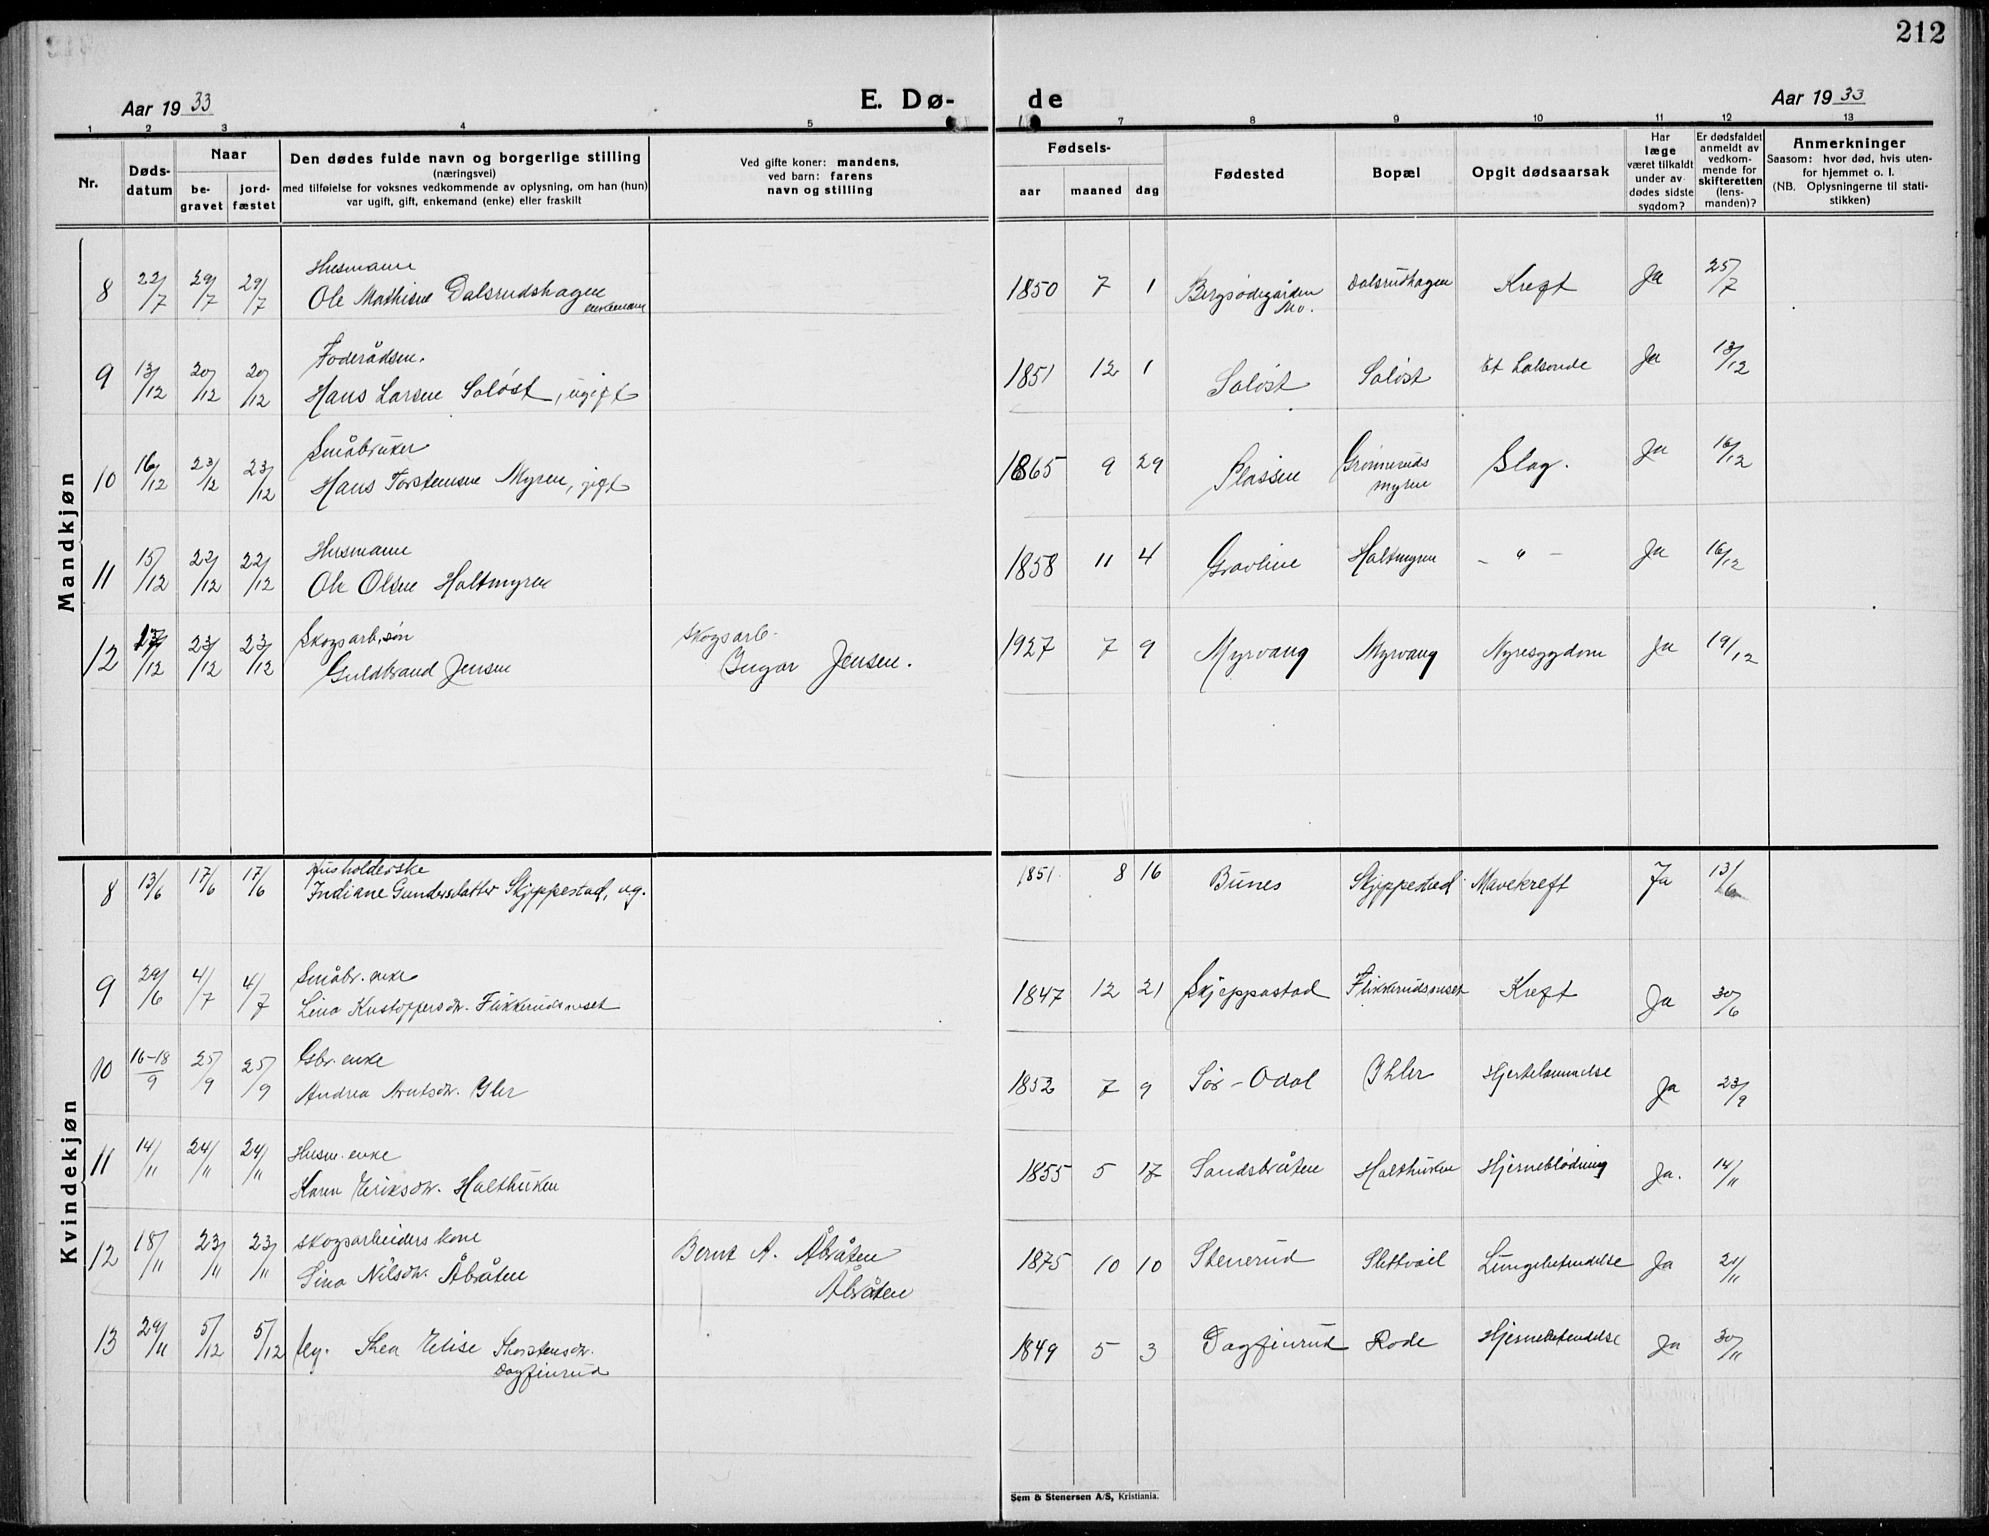 212
Aar 1933
E. Dø-
de
Aar 1933
1 2 3 4 5 7 8 9 10 11 12 13
Nr.
Døds-
datum
Naar
be-
gravet
jord-
fæstet
Den dødes fulde navn og borgerlige stilling
(næringsvei)
med tilføielse for voksnes vedkommende av oplysning, om han (hun)
var ugift, gift, enkemand (enke) eller fraskilt
Ved gifte koner: mandens,
ved barn: farens
navn og stilling
Fødsels-
aar maaned dag
Fødested
Bopæl
Opgit dødsaarsak
Har
læge
været tilkaldt
under av-
dødes sidste
sygdom?
Er dødsfaldet
anmeldt av
vedkom-
mende for
skifteretten
(lens-
manden)?
Anmerkninger
Saasom: hvor død, hvis uten-
for hjemmet o. l.
(NB. Oplysningerne til stati-
stikken)
Mandkjøn
8 22/7 29/7 29/7 Husmann
Ole Mathisen Dalsrudshagen
enkemann
1850 7 1 Bergsødegården
Mo.
Dalsrudhagen Kreft Ja 25/7
9 13/12 20/12 20/12 Foderådsm.
Hans Larsen Soløst, ugift
1851 12 1 Soløst Soløst Ja 13/12
10 16/12 23/12 23/12 Småbruker
Hans Torstensen Myren, gift
1865 9 29 Plassen Grønneruds
myren
Slag. Ja 16/12
11 15/12 22/12 22/12 Husmann
Ole Olsen Holtmyren
1858 11 4 Gravline Holtmyren - " - Ja 16/12
12 /12 23/12 23/12 Skogsarb. søn
Guldbrand Jensen
Skogsarb.
Ingar Jensen.
1927 7 9 Myrvang Myrvang Nyresygdom Ja 19/12
Kvindekjøn
8 13/6 17/6 17/6 Husholderske
Indiane Gundersdatter Skjeppestad, ug.
1851 8 16 Bunes Skjeppestad Mavekreft Ja 13/6
9 29/6 4/7 4/7 Småbr. enke
Lina Kristoffersdtr. Flikkerudsneset
1847 12 21 Skjeppestad Flikkerudsneset Kreft Ja 30/6
10 16-18/9 25/9 25/9 Gbr. enke
Andrea Arntsdtr. Ihler
1852 7 9 Sør-Odal Ihler Hjertelammelse Ja 23/9
11 14/11 24/11 24/11 Husm. enke
Karen Eriksdtr. Holthuken
1855 5 17 Sandsbråten Holthuken Hjerneblødning Ja. 14/11
12 18/11 23/11 23/11 Skogsarbeiders kone
Lina Nilsdtr. Åbråten
Bernt A. Åbråten
Åbråten
1875 10 10 Stenerud Slettvoll Lungebetendelse Ja 20/11
13 29/11 5/12 5/12 Thea Elise Thorstensdtr.
Dagfinrud
1849 5 3 Dagfinrud Rode Hjernebetendelse Ja 30/11
Sem & Stenersen A/S, Kristiania.